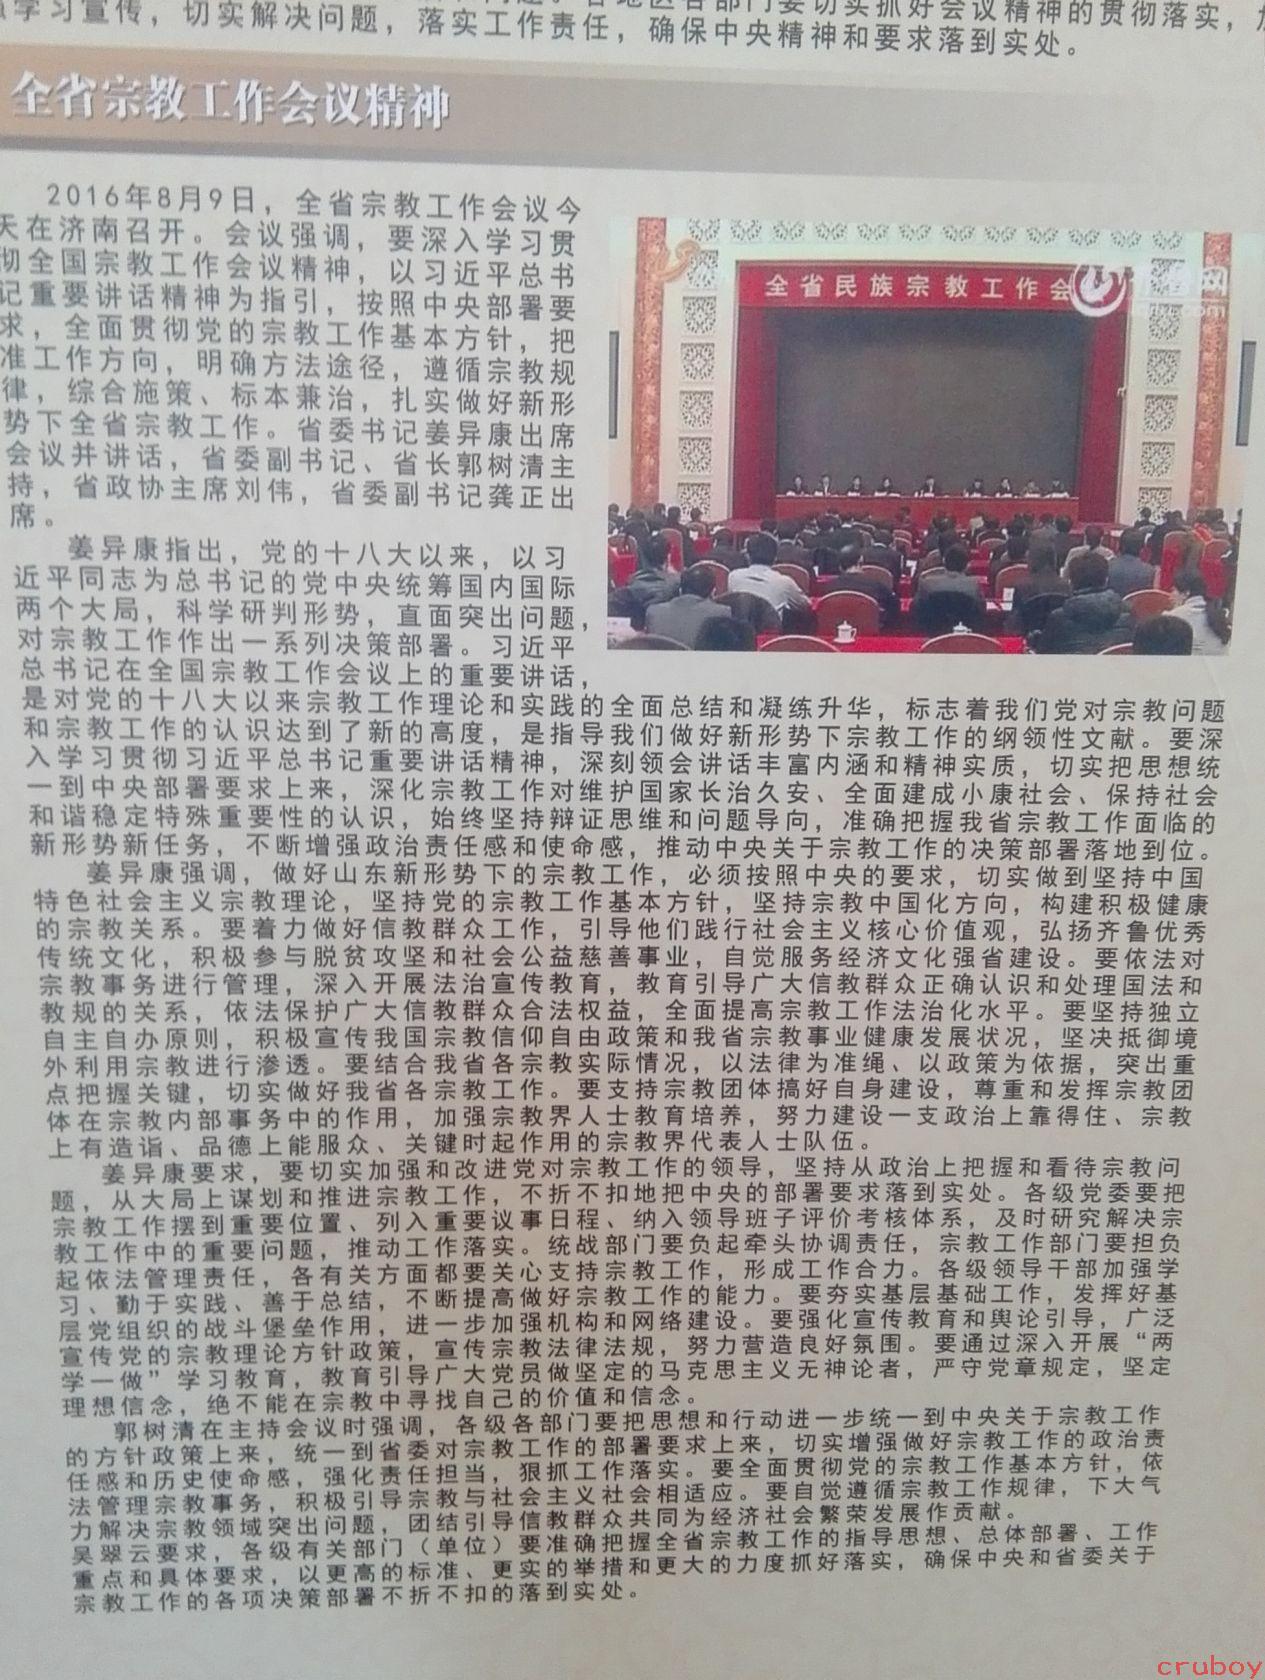 强学习宣传，切实解决问题，落实工作责任，确保中央精神和要求落到实处。
各地区各部门要切实抓好会议精神的贯彻落实，
全省宗教工作会议精神
2016年8月9日，全省宗教工作会议今
天在济南召开。会议强调，要深入学习贯
彻全国宗教工作会议精神，以习近平总书
记重要讲话精神为指引，按照中央部署要
求，全面贯彻党的宗教工作基本方针，把
准工作方向，明确方法途径，遵循宗教规
律，综合施策、标本兼治，扎实做好新形
势下全省宗教工作。省委书记姜异康出席
会议并讲话，省委副书记、省长郭树清主
持，省政协主席刘伟，省委副书记龚正出
席。
全省民族宗教工作会
姜异康指出，党的十八大以来，以习
近平同志为总书记的党中央统筹国内国际
两个大局，科学研判形势，直面突出问题，
对宗教工作作出一系列决策部署。习近平
总书记在全国宗教工作会议上的重要讲话，
是对党的十八大以来宗教工作理论和实践的全面总结和凝练升华，标志着我们党对宗教问题
和宗教工作的认识达到了新的高度，是指导我们做好新形势下宗教工作的纲领性文献。要深
入学习贯彻习近平总书记重要讲话精神，深刻领会讲话丰富内涵和精神实质，切实把思想统
一到中央部署要求上来，深化宗教工作对维护国家长治久安、全面建成小康社会、保持社会
和谐稳定特殊重要性的认识，始终坚持辩证思维和问题导向，准确把握我省宗教工作面临的
新形势新任务，不断增强政治责任感和使命感，推动中央关于宗教工作的决策部署落地到位。
姜异康强调，做好山东新形势下的宗教工作，必须按照中央的要求，切实做到坚持中国
特色社会主义宗教理论，坚持党的宗教工作基本方针，坚持宗教中国化方向，构建积极健康
的宗教关系。要着力做好信教群众工作，引导他们践行社会主义核心价值观，弘扬齐鲁优秀
传统文化，积极参与脱贫攻坚和社会公益慈善事业，自觉服务经济文化强省建设。要依法对
宗教事务进行管理，深入开展法治宣传教育，教育引导广大信教群众正确认识和处理国法和
教规的关系，依法保护广大信教群众合法权益，全面提高宗教工作法治化水平。要坚持独立
自主自办原则，积极宣传我国宗教信仰自由政策和我省宗教事业健康发展状况，坚决抵御境
外利用宗教进行渗透。要结合我省各宗教实际情况，以法律为准绳、以政策为依据，突出重
点把握关键，切实做好我省各宗教工作。要支持宗教团体搞好自身建设，尊重和发挥宗教团
体在宗教内部事务中的作用，加强宗教界人士教育培养，努力建设一支政治上靠得住、宗教
上有造诣、品德上能服众、关键时起作用的宗教界代表人士队伍。
姜异康要求，要切实加强和改进党对宗教工作的领导，坚持从政治上把握和看待宗教问
题，从大局上谋划和推进宗教工作，不折不扣地把中央的部署要求落到实处。各级党委要把
宗教工作摆到重要位置、列入重要议事日程、纳入领导班子评价考核体系，及时研究解决宗
教工作中的重要问题，推动工作落实。统战部门要负起牵头协调责任，宗教工作部门要担负
起依法管理责任，各有关方面都要关心支持宗教工作，形成工作合力。各级领导干部加强学
习、勤于实践、善于总结，不断提高做好宗教工作的能力。要夯实基层基础工作，发挥好基
层党组织的战斗堡垒作用，进一步加强机构和网络建设。要强化宣传教育和舆论引导，广泛
宣传党的宗教理论方针政策，宣传宗教法律法规，努力营造良好氛围。要通过深入开展“两
学一做”学习教育，教育引导广大党员做坚定的马克思主义无神论者，严守党章规定，坚定
理想信念，绝不能在宗教中寻找自己的价值和信念。
郭树清在主持会议时强调，各级各部门要把思想和行动进一步统一到中央关于宗教工作
的方针政策上来，统一到省委对宗教工作的部署要求上来，切实增强做好宗教工作的政治责
任感和历史使命感，强化责任担当，狠抓工作落实。要全面贯彻党的宗教工作基本方针，依
法管理宗教事务，积极引导宗教与社会主义社会相适应。要自觉遵循宗教工作规律，下大气
力解决宗教领域突出问题，团结引导信教群众共同为经济社会繁荣发展作贡献。
吴翠云要求，各级有关部门（单位）要准确把握全省宗教工作的指导思想、总体部署、工作
重点和具体要求，以更高的标准、更实的举措和更大的力度抓好落实，确保中央和省委关于
宗教工作的各项决策部署不折不扣的落到实处。
cruboy